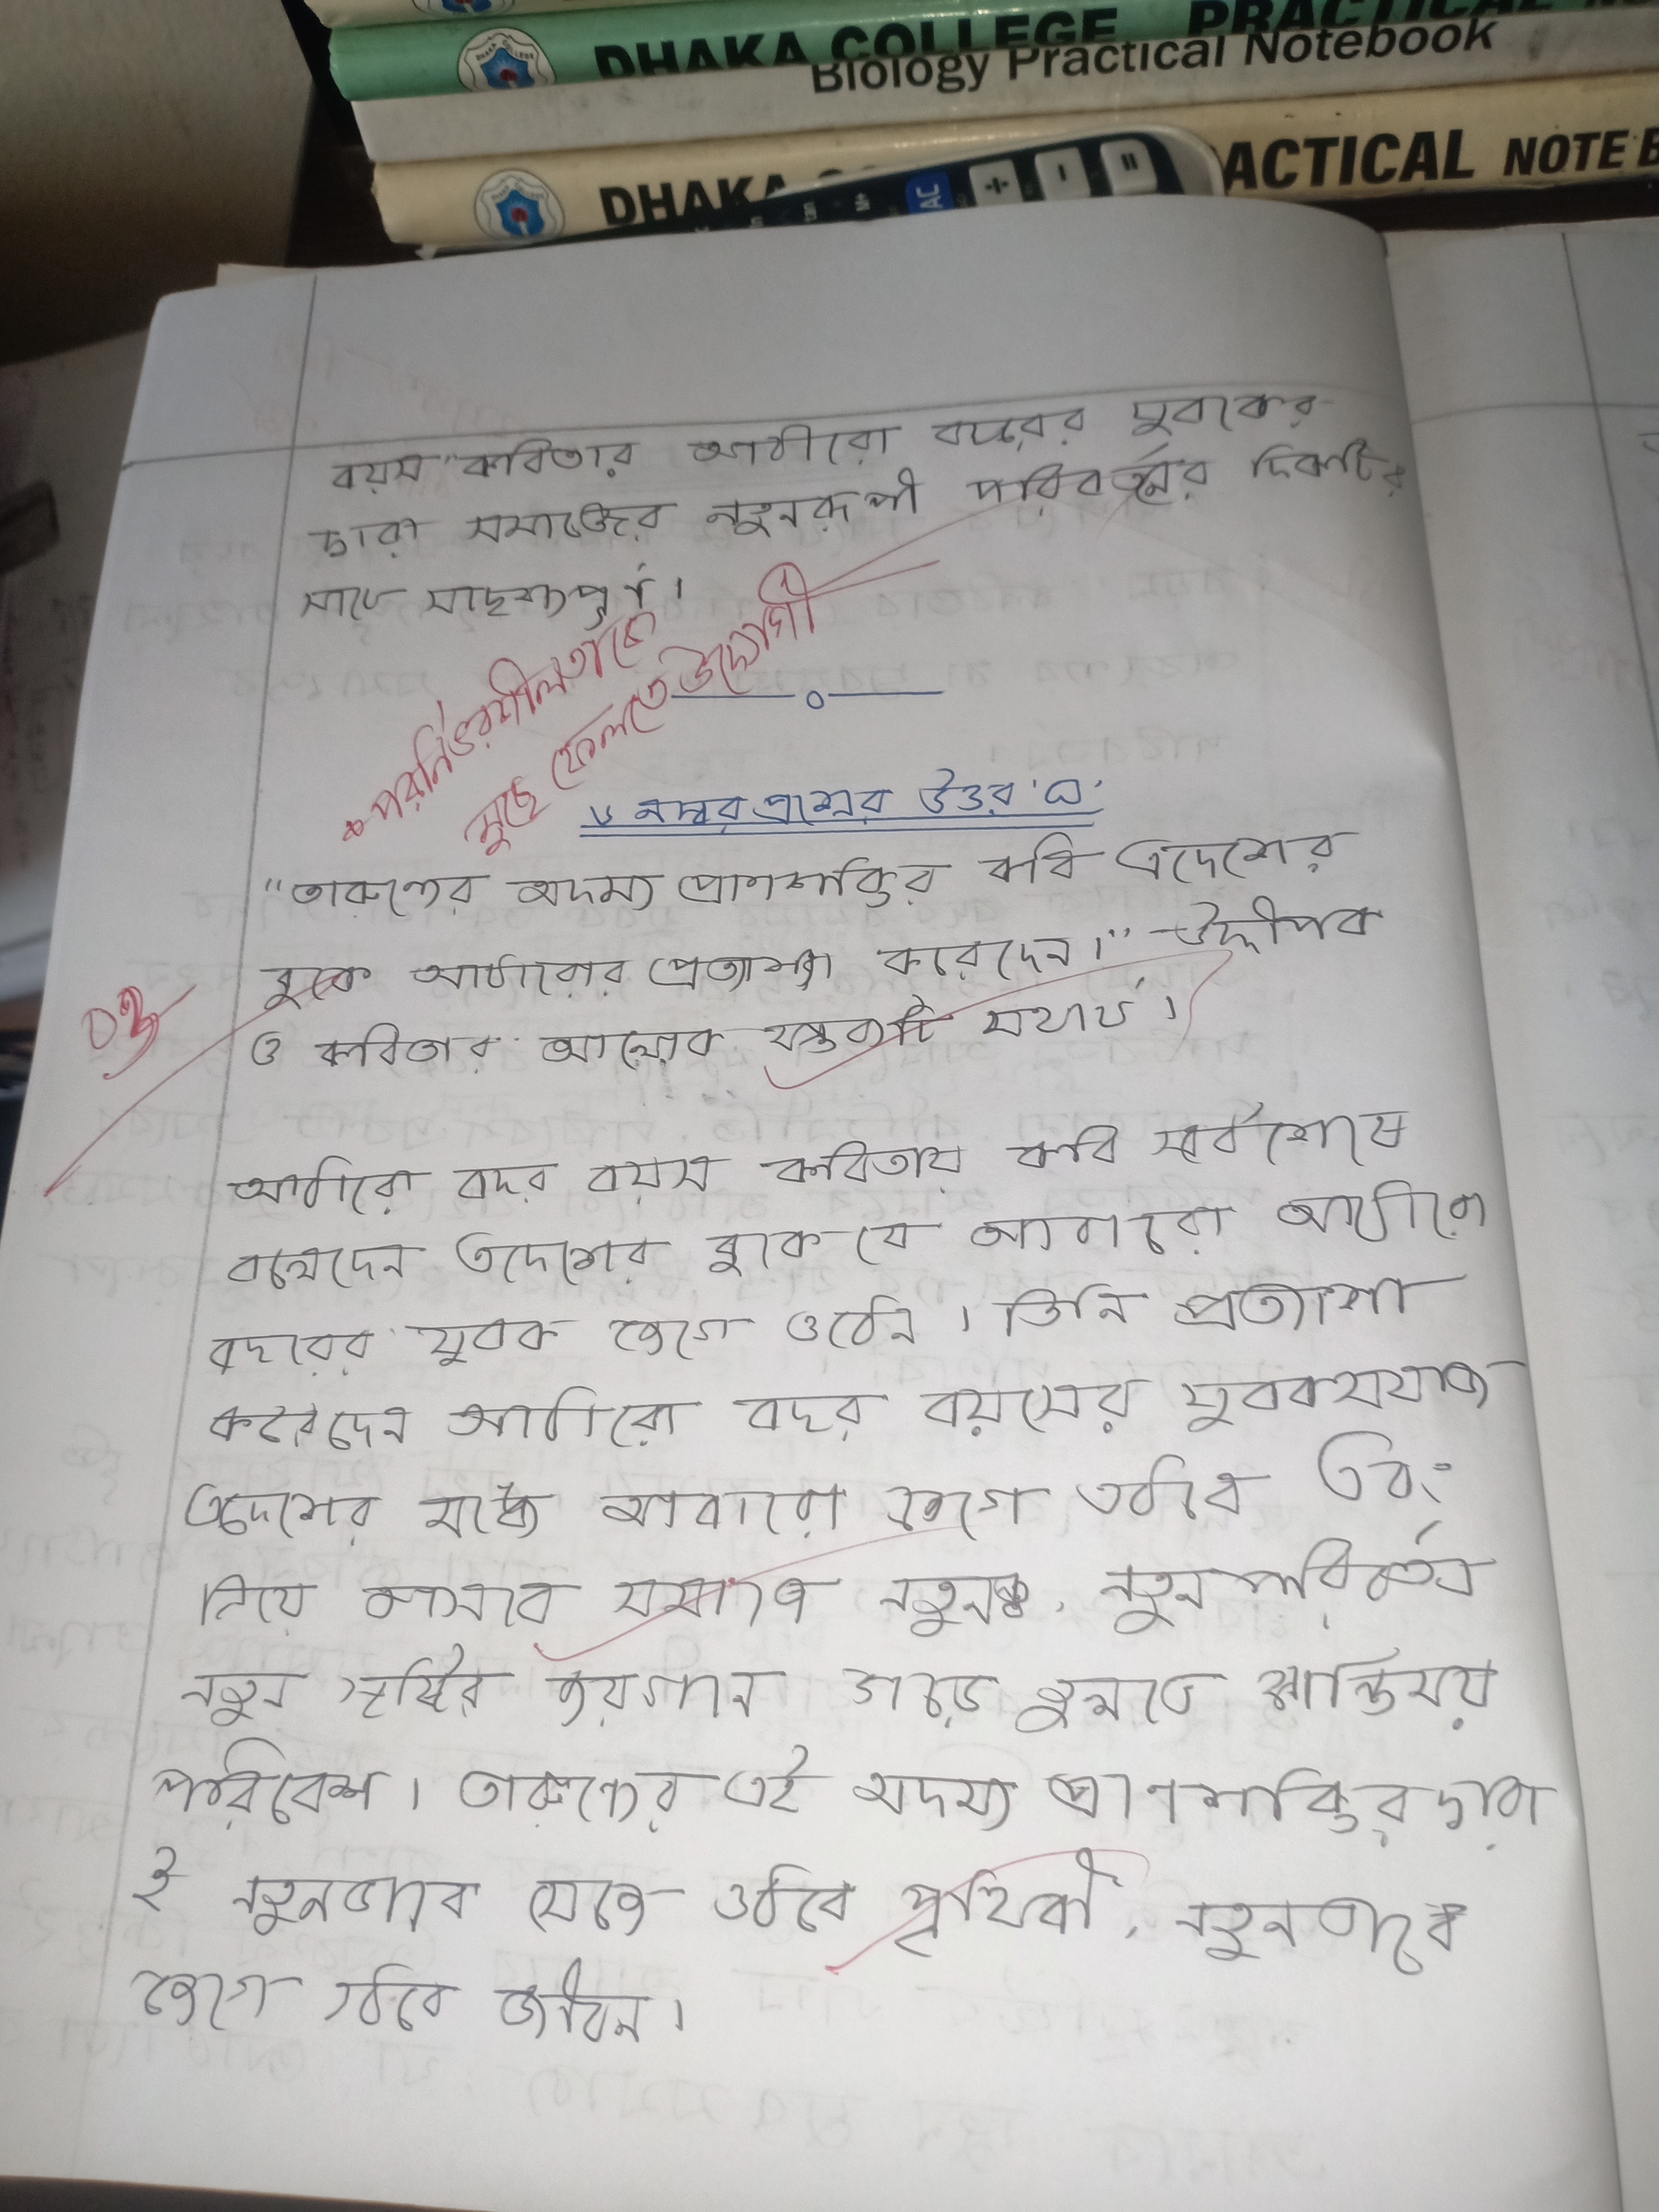 DHAKA COLLEGE PRACTICAL
Biology Practical Notebook
DHAKA ACTICAL NOTE B
AC ÷ - =
বয়স" কবিতার আঠারো বছরের যুবকের
দ্বারা সমাজের নতুনরূপী পরিবর্তনের দিকটির
সাথে সাদৃশ্যপূর্ণ।
* পরনির্ভরশীলতাকে
মুছে ফেলতে উদ্যোগী
৬ নম্বর প্রশ্নের উত্তর 'ঘ'
"তারুণ্যের অদম্য প্রাণশক্তির কবি এদেশের
বুকে আঠারোর প্রত্যাশা করেছেন।" উদ্দীপক
ও কবিতার আলোকে মন্তব্যটি যথার্থ।
আঠারো বছর বয়স কবিতায় কবি সর্বশেষে
বলেছেন এদেশের বুকে যে আবারো আঠারো
বছরের যুবক জেগে ওঠেন। তিনি প্রত্যাশা
করেছেন আঠারো বছর বয়সের যুবকসমাজ
এদেশের মধ্যে আবারো জেগে ওঠবে এবং
নিয়ে আসবে সমাজে নতুনত্ব, নতুন পরিবর্তন
নতুন সৃষ্টির জয়গান গড়ে তুলতে শান্তিময়
পরিবেশ। তারুণ্যের এই অদম্য প্রাণশক্তির দ্বারা
ই নতুনভাবে সেজে ওঠবে পৃথিবী, নতুনভাবে
জেগে ওঠবে জীবন।